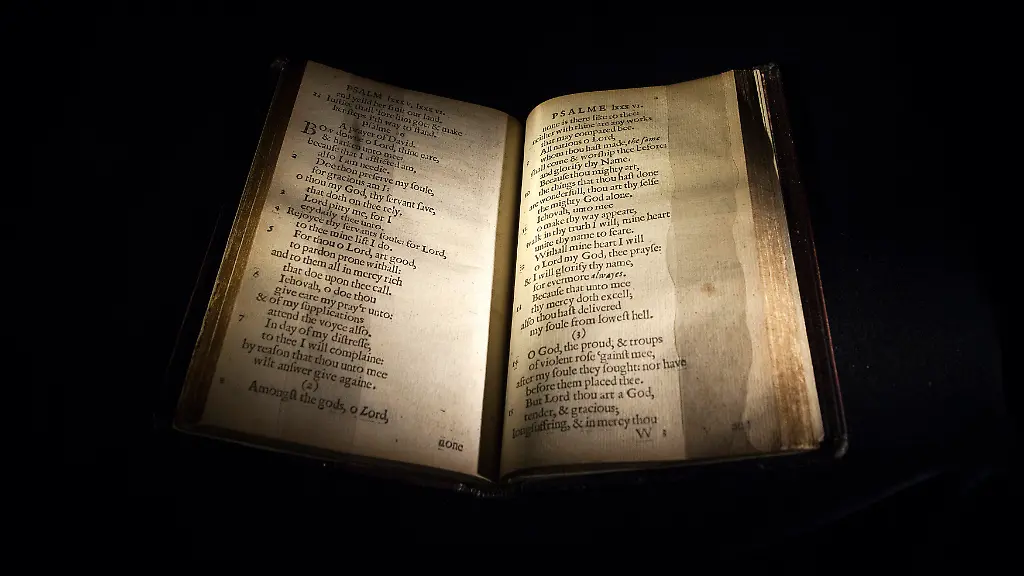 PSALM lxxx v, lxxx vi.
and yeild her fruit our land.
Iuſtice ſhall fore him goe: & make
his ſteps i'th way to ſtand.
Pſalme 86
A prayer of David.
BOw downe o Lord, thine eare,
& harken unto mee:
becauſe that I afflicted am,
alſo I am needie.
2 Doe thou preſerve my ſoule,
for gracious am I:
o thou my God, thy ſervant ſave,
that doth on thee rely.
3 Lord pitty me, for I
cry daily thee unto.
4 Rejoyce thy ſervants ſoule: for Lord,
to thee mine lift I do.
5 For thou o Lord, art good,
to pardon prone withall:
and to them all in mercy rich
that doe upon thee call.
6 Iehovah, o doe thou
give eare my pray'r unto:
& of my ſupplications
attend the voyce alſo.
7 In day of my diſtreſſe,
to thee I will complaine:
by reaſon that thou unto mee
wilt anſwer give againe.
(2)
Amongſt the gods, o Lord,
none
PSALME lxxx vi.
none is there like to thee:
neither with thine are any works
that may compared bee.
All nations o Lord,
whom thou haſt made, the ſame
ſhall come & worſhip thee before:
and glorify thy Name.
Becauſe thou mighty art,
the things that thou haſt done
are wonderfull, thou art thy ſelfe
the mighty God alone.
Iehovah, unto mee
o make thy way appeare,
walk in thy truth I will; mine heart
unite thy name to feare.
Withall mine heart I will
o Lord my God, thee prayſe:
& I will glorify thy name,
for evermore alwayes.
Becauſe that unto mee
thy mercy doth excell;
alſo thou haſt delivered
my ſoule from loweſt hell.
(3)
O God, the proud, & troups
of violent roſe 'gainſt mee,
after my ſoule they ſought: nor have
before them placed thee.
But Lord thou art a God,
tender, & gracious;
longſuffring, & in mercy thou
W